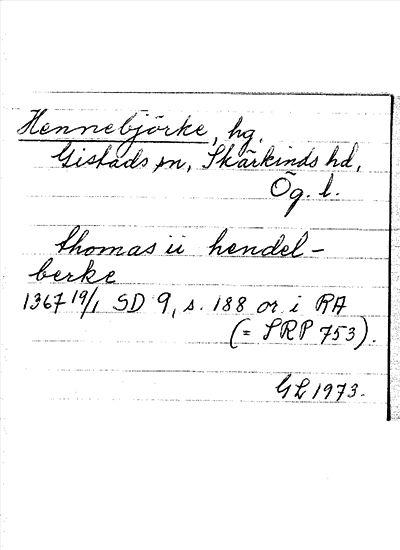 Hennebjörke, hg.
Gistads sn, Skärkinds hd,
Ög. l.
thomas ii hendel-
berke
1367 19/1 SD 9, s. 188 or. i RA
(= SRP 753).
GL 1973.